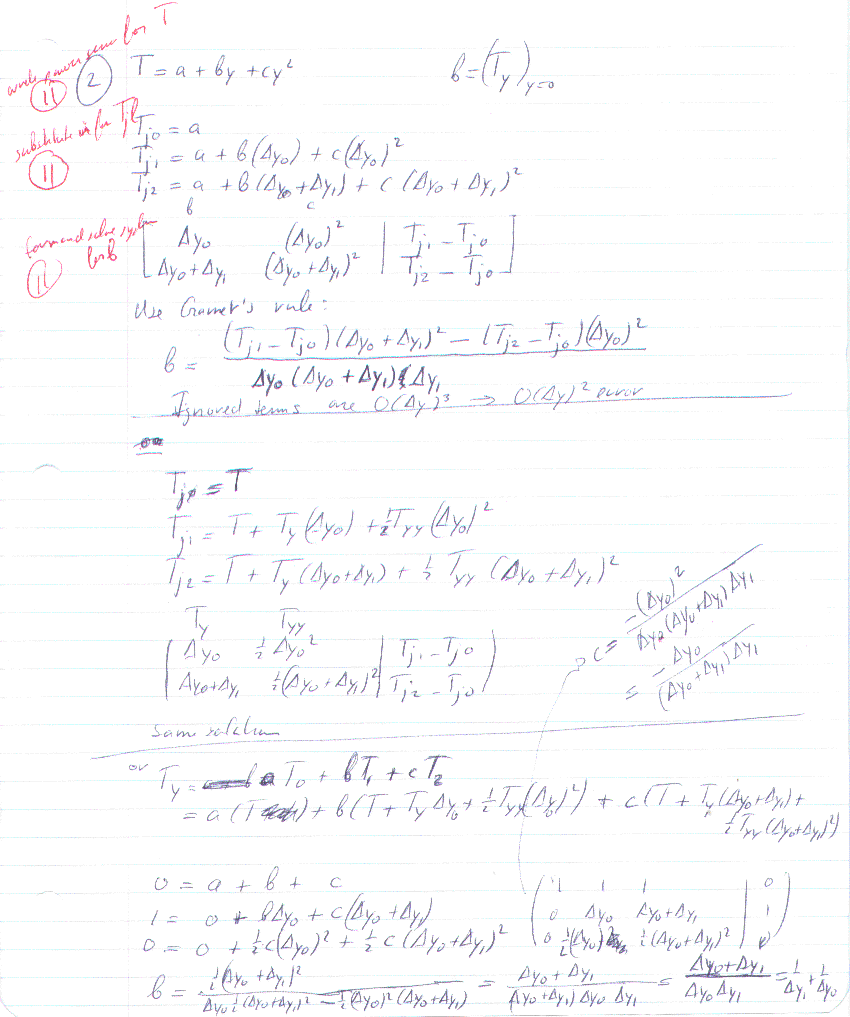 write power series for T
11 2 T = a + by + cy² b = (T_y)_{y=0}
substitute in for Tjl
11
T_{j0} = a
T_{j1} = a + b(Δy₀) + c(Δy₀)²
T_{j2} = a + b(Δy₀+Δy₁) + c(Δy₀+Δy₁)²
form and solve system for b
11
b c
[ Δy₀ (Δy₀)² | T_{j1} − T_{j0} ]
[ Δy₀+Δy₁ (Δy₀+Δy₁)² | T_{j2} − T_{j0} ]
Use Cramer's rule:
b = ((T_{j1} − T_{j0})(Δy₀+Δy₁)² − (T_{j2} − T_{j0})(Δy₀)²) / (Δy₀(Δy₀+Δy₁)Δy₁)
Ignored terms are O(Δy)³ → O(Δy)² error
or
T_{j0} = T
T_{j1} = T + T_y(Δy₀) + ½T_{yy}(Δy₀)²
T_{j2} = T + T_y(Δy₀+Δy₁) + ½ T_{yy}(Δy₀+Δy₁)²
T_y T_{yy}
( Δy₀ ½Δy₀² | T_{j1} − T_{j0} )
( Δy₀+Δy₁ ½(Δy₀+Δy₁)² | T_{j2} − T_{j0} )
c = −(Δy₀)² / (Δy₀(Δy₀+Δy₁)Δy₁)
= −Δy₀ / ((Δy₀+Δy₁)Δy₁)
same solution
or T_y = a T₀ + bT₁ + cT₂
= a(T) + b(T + T_yΔy₀ + ½T_{yy}(Δy₀)²) + c(T + T_y(Δy₀+Δy₁) +
½T_{yy}(Δy₀+Δy₁)²)
0 = a + b + c
1 = 0 + bΔy₀ + c(Δy₀+Δy₁)
0 = 0 + ½c(Δy₀)² + ½c(Δy₀+Δy₁)²
( 1 1 1 | 0 )
( 0 Δy₀ Δy₀+Δy₁ | 1 )
( 0 ½(Δy₀)² ½(Δy₀+Δy₁)² | 0 )
b = ½(Δy₀+Δy₁)² / (Δy₀½(Δy₀+Δy₁)² − ½(Δy₀)²(Δy₀+Δy₁)) = (Δy₀+Δy₁) / ((Δy₀+Δy₁)Δy₀ Δy₁) = (Δy₀+Δy₁) / (Δy₀Δy₁) = 1/Δy₁ + 1/Δy₀